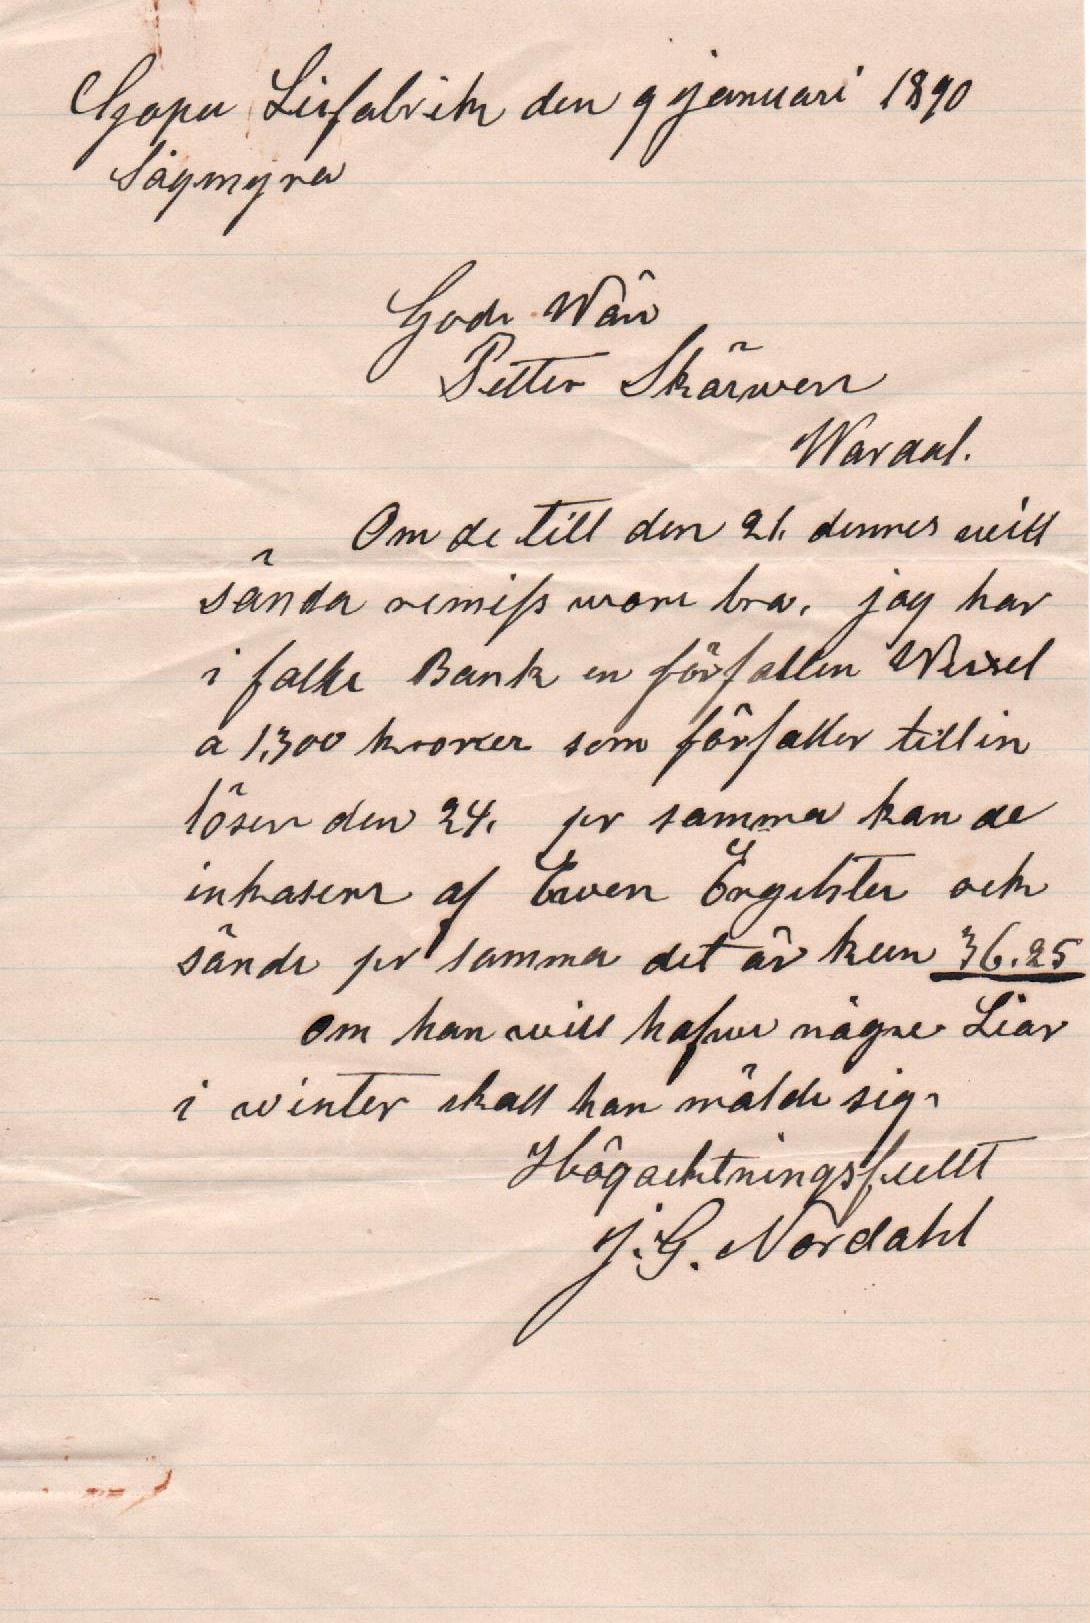 Gopa Liefabrik den 9 januari 1890
Sågmyra
Gode Wän
Petter Skärwen
Wardal.
Om de till den 21. dennes will
sända remiss wore bra. jag har
i falke Bank en förfallen Wexel
a 1,300 kronor som förfaller till in
lösen den 24. pr samma kan de
inkasera af Ewen Engelster och
sände pr samma det är kun 36.25
Om han will hafwe någre Liar
i winter skall han mälde sig.
Högachtningsfullt
J. G. Nordahl